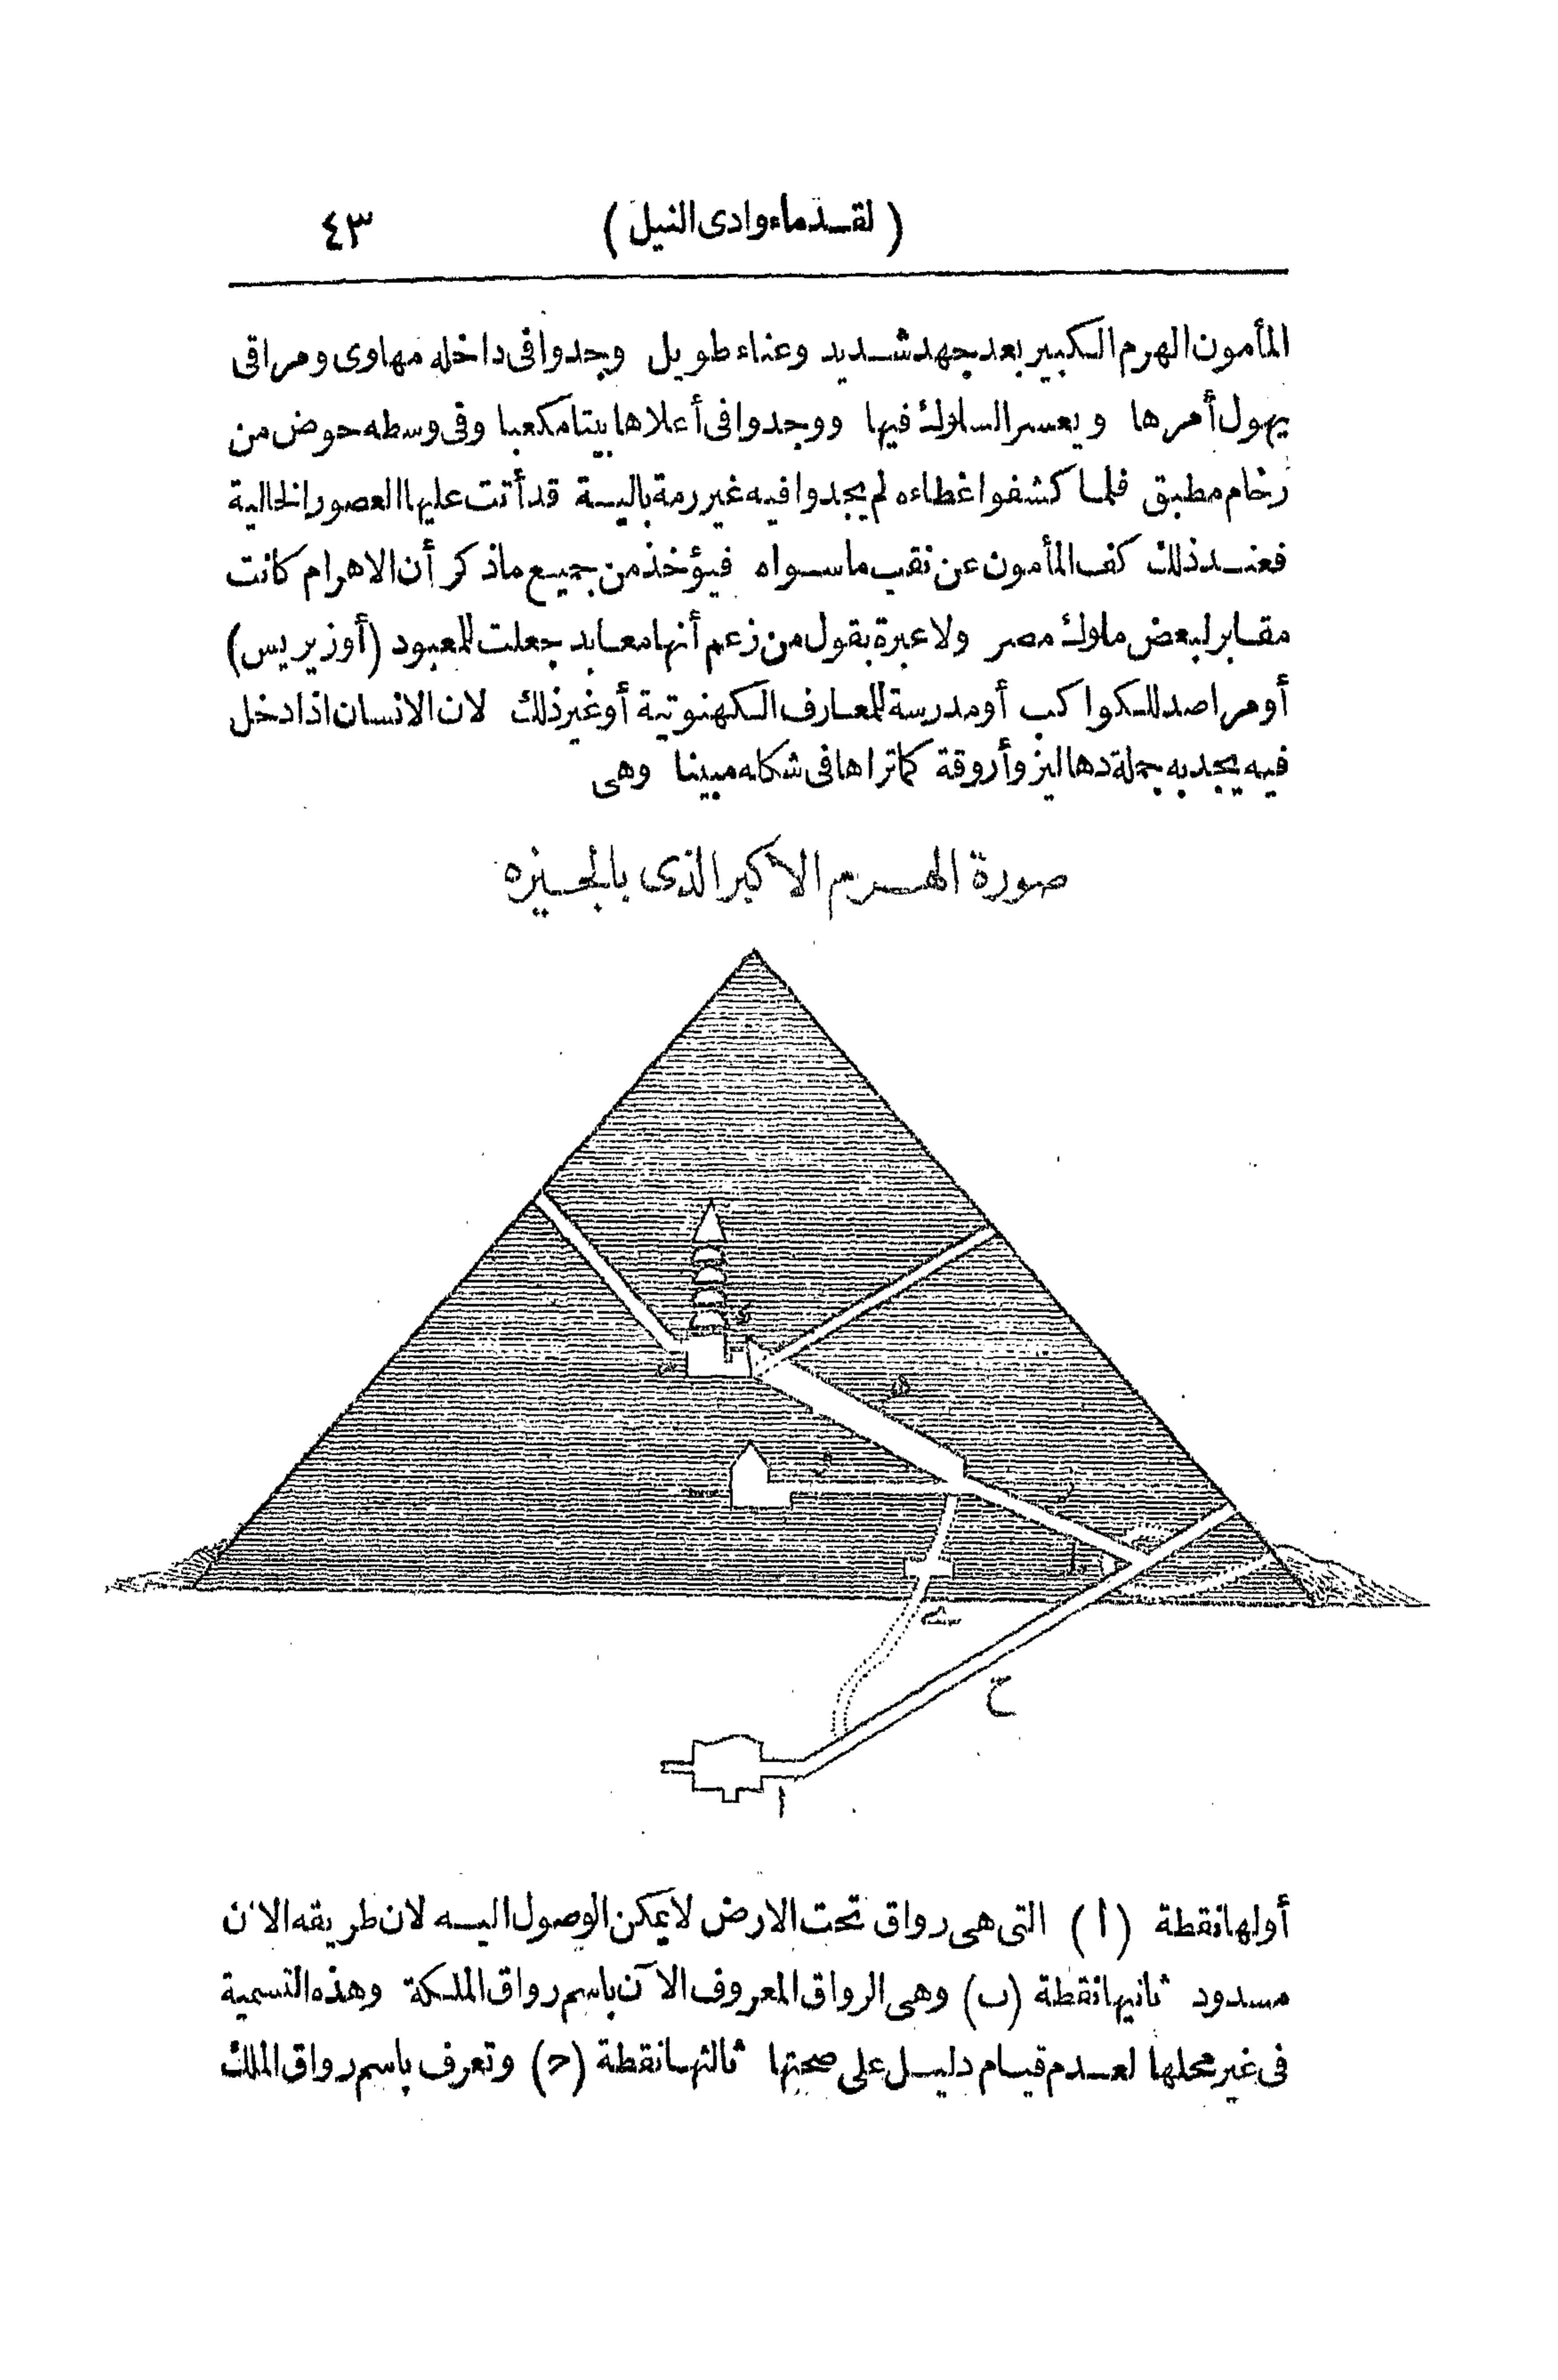 (لقدماء وادى النيل) ٤٣
المأمون الهرم الكبير بعد جهد شديد وعناء طويل وجدوا فى داخله مهاوى ومراقى
يهول أمرها ويعسر السلوك فيها ووجدوا فى أعلاها بيتا مكعبا وفى وسطه حوض من
رخام مطبق فلما كشفوا غطاءه لم يجدوا فيه غير رمة بالية قد أتت عليها العصور الخالية
فعند ذلك كف المأمون عن نقب ما سواه فيؤخذ من جميع ماذكر أن الاهرام كانت
مقابر لبعض ملوك مصر ولا عبرة بقول من زعم أنها معابد جعلت للمعبود (أوزيريس)
أو مراصد للكواكب أو مدرسة للمعارف الكهنوتية أو غير ذلك لان الانسان اذا دخل
فيه يجد به جملة دهاليز وأروقة كما تراها فى شكله مبينا وهى
صورة الهرم الاكبر الذى بالجيزه
ح
ا
أولها نقطة (ا) التى هى رواق تحت الارض لا يمكن الوصول اليه لان طريقه الآن
مسدود ثانيها نقطة (ب) وهى الرواق المعروف الآن باسم رواق الملكة وهذه التسمية
فى غير محلها لعدم قيام دليل على صحتها ثالثها نقطة (ح) وتعرف باسم رواق الملك